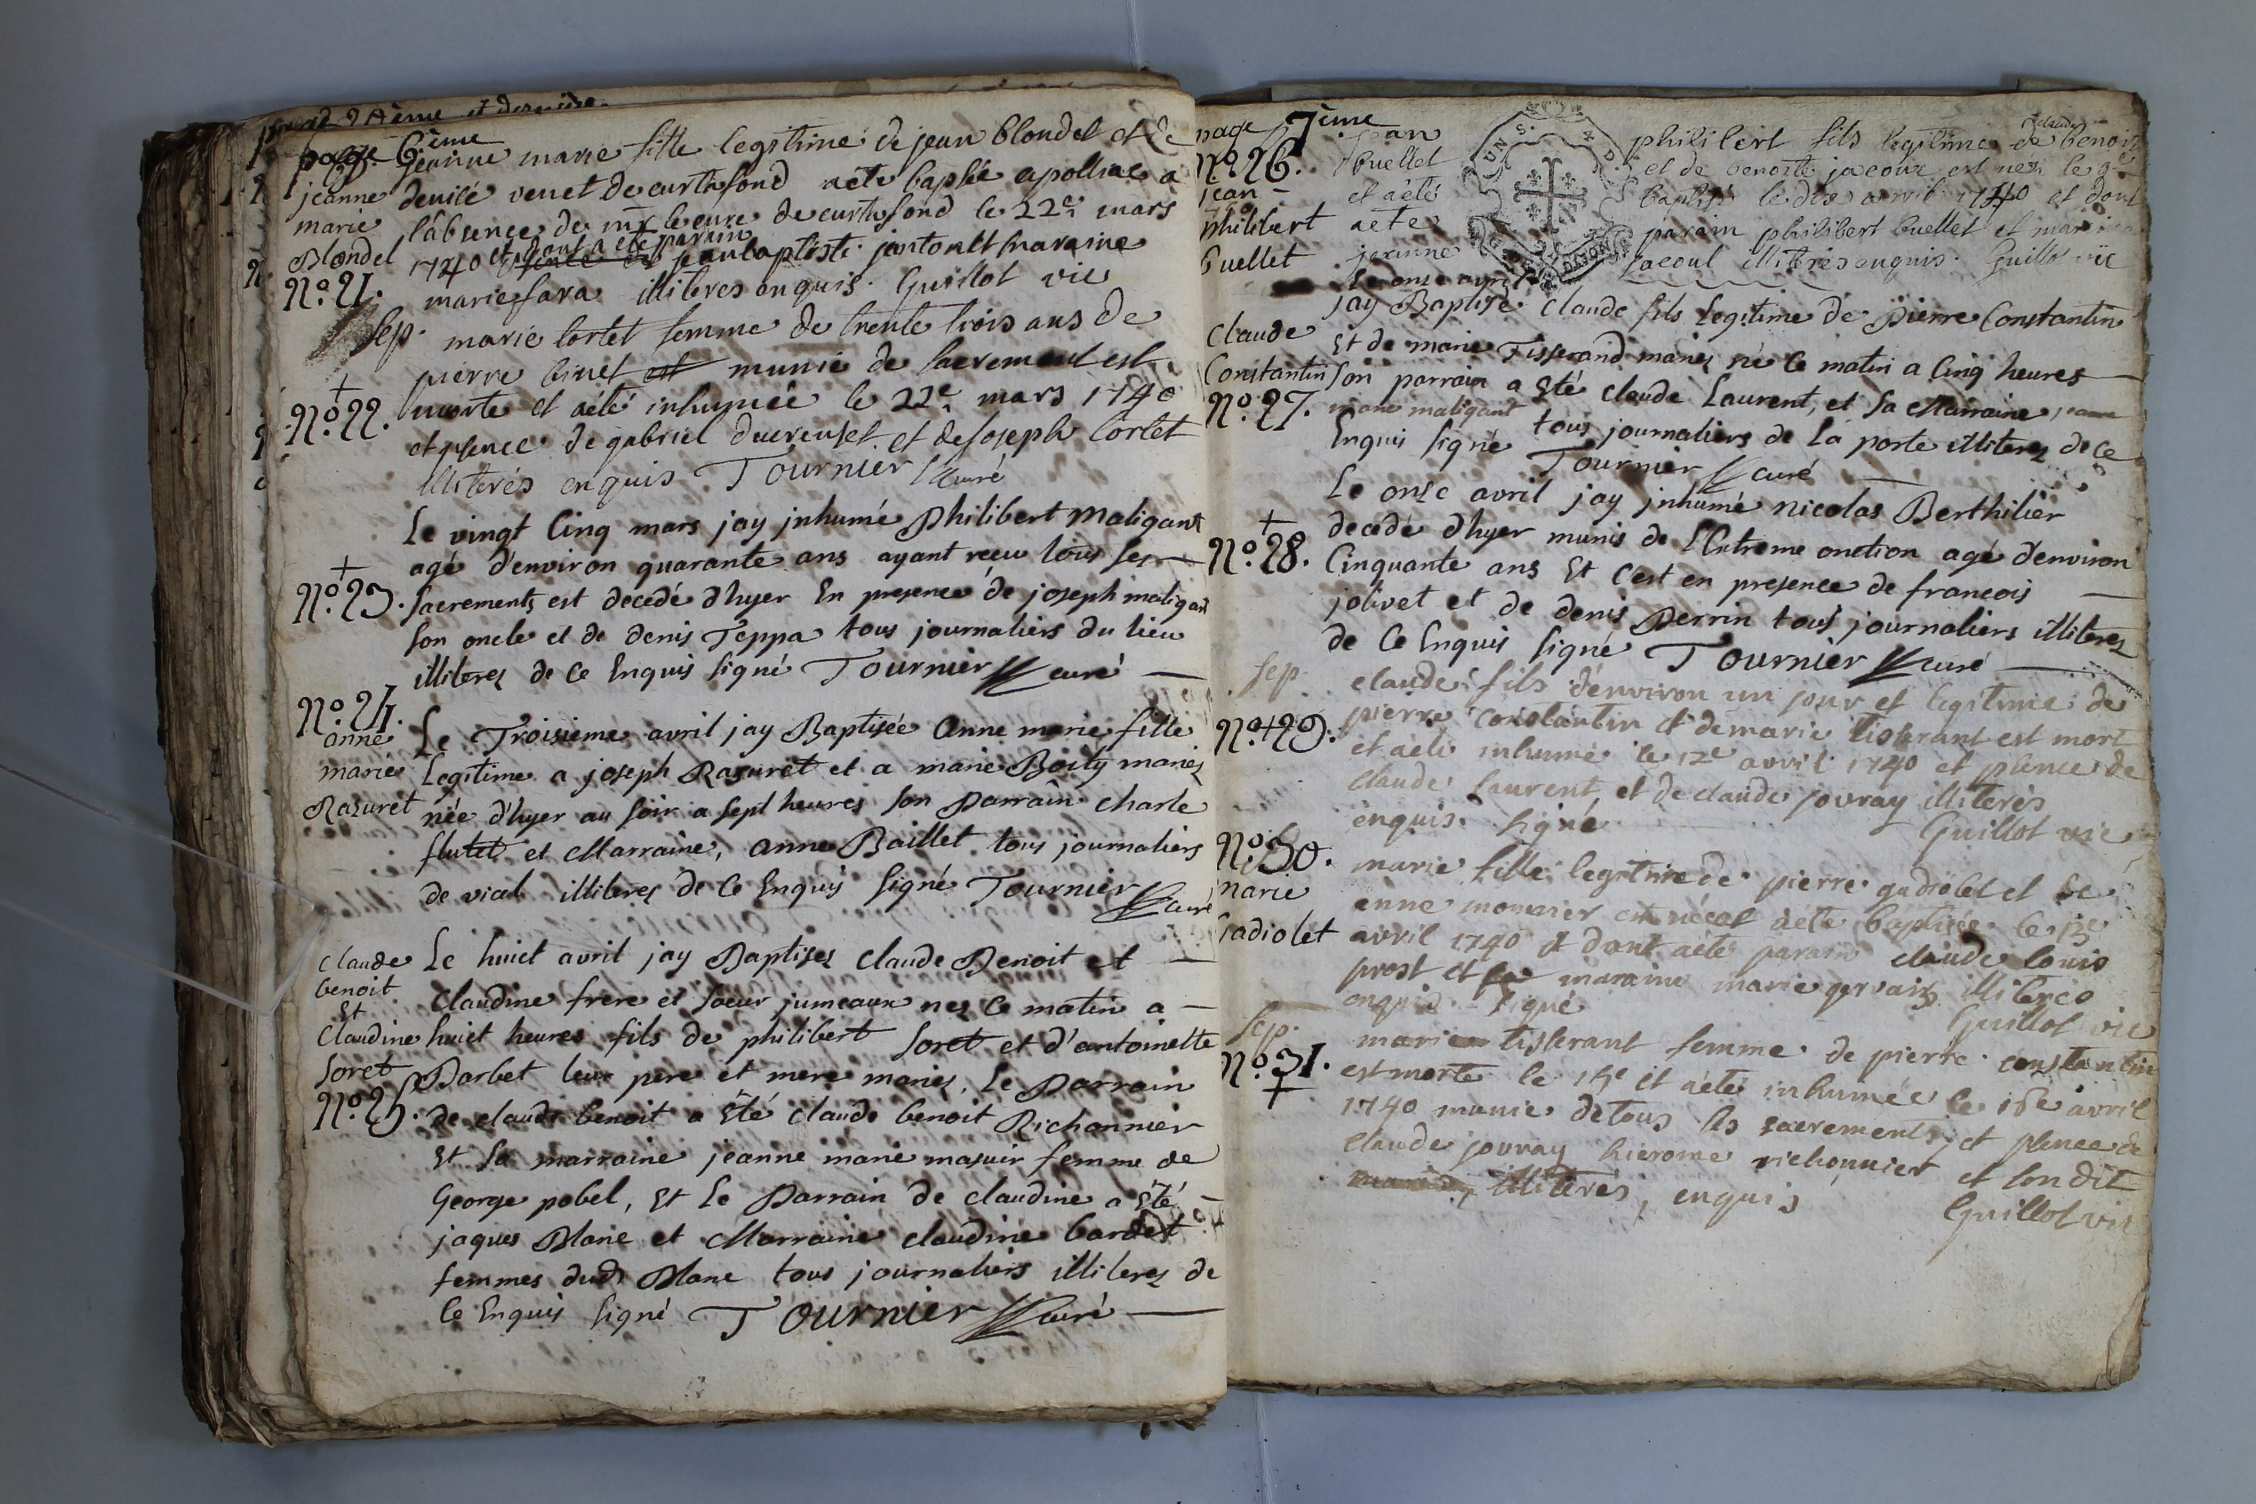 page 6ème
jeanne marie fille legitime de jean blondel et de
jeanne deuilé venet de curtafond a été baptsée apolliac a
marie l'absence de mr le cure de curtafond le 22e mars
Blondel
et dont a été parain
1740 jeanbaptiste jantoult maraine
No. 21.
marie fara illiteres enquis. Guillot vic
sep. marie cortet femme de trente trois ans de
pierre binet est munie de sacrement est
morte et a été inhumée le 22e mars 1740
+
No. 22.
et psence de gabriel ducreuset et de joseph Cortet
illiterés enquis Tournier curé
Le vingt Cinq mars jay jnhumé Philibert maligant
agé d'environ quarante ans ayant receu tous ses
+
No. 23.
sacrements est decedé d'hyer En presence de joseph maligant
son oncle et de denis Teppa tous journaliers du lieu
illiterez de ce Enquis signé Tournier curé
No. 24.
anne
marie
Razuret
Le Troisieme avril jay Baptisée Anne marie fille
Legitime a joseph Razuret et a marie Boity mariez
née d'hyer au soir a sept heures son Parrain charle
flutet et Marraine, anne Baillet tous journaliers
de vial illiterez de ce Enquis signé Tournier curé
claude
benoit
Et
Claudine
soret
No. 25.
Le huict avril jay Baptisez claude Benoit et
claudine frere et soeur jumeaux nez ce matin a
huict heures fils de philibert soret et d'antoinette
Barbet leur pere et mere mariez, Le Parrain
de claude benoit a Eté claude benoit Richonnier
Et sa marraine jeanne marie masuir femme de
George pobel, Et Le Parrain de claudine a Eté
jaques Blanc et Marraine claudine bardet
femmes dudt Blanc tous journaliers illiterez de
ce Enquis signé Tournier curé
page 7ème
No. 26.
jean
philibert
buellet
jean philibert fils legitime de claude benoit
buellet et de benoite jacoux est nez le 9e
et a été baptisé le dix avril 1740 et dont
a ete parain philibert buellet et maraine
jeanne jacoul illiterés enquis. Guillot vic
Le onse avril
jay Baptisé Claude fils Legitime de Pierre Constantin
Claude
Constantin
No. 27.
Et de marie Tisserand mariez né ce matin a Cinq heures
son parrain a Eté claude Laurent, et sa Marraine jeanne
marie maligant tous journaliers de La porte illiterez de ce
Enquis signé Tournier curé
Le onse avril jay jnhumé nicolas Berthilier
+
No. 28.
decedé d'hyer munis de L'Extreme onction agé d'environ
Cinquante ans Et c'est en presence de francois
jolivet et de denis Perrin tous journaliers illiterez
de ce Enquis signé Tournier curé
sep.
No. +29.
claude fils d'environ un jour et legitime de
pierre constantin et de marie tisserant est mort
et a été inhumé le 12e avril 1740 et psence de
claude laurent et de claude jouvray illiterés
enquis signé Guillot vic
No. 30.
marie
Gadiolet
marie fille legitime de pierre gadiolet et de
anne monnier est née et a été baptisée le 13e
avril 1740 et dont a été parain claude louis
prost et maraine marie gervais illiterés
enquis signé Guillot vic
sep.
No. 31.
+
marie tisserant femme de pierre constantin
est morte le 15e et a été inhumée le 16e avril
1740 munie de tous les sacrements, et psence de
claude jouvray hierome richonnier et son dit
illiterés, enquis Guillot vic